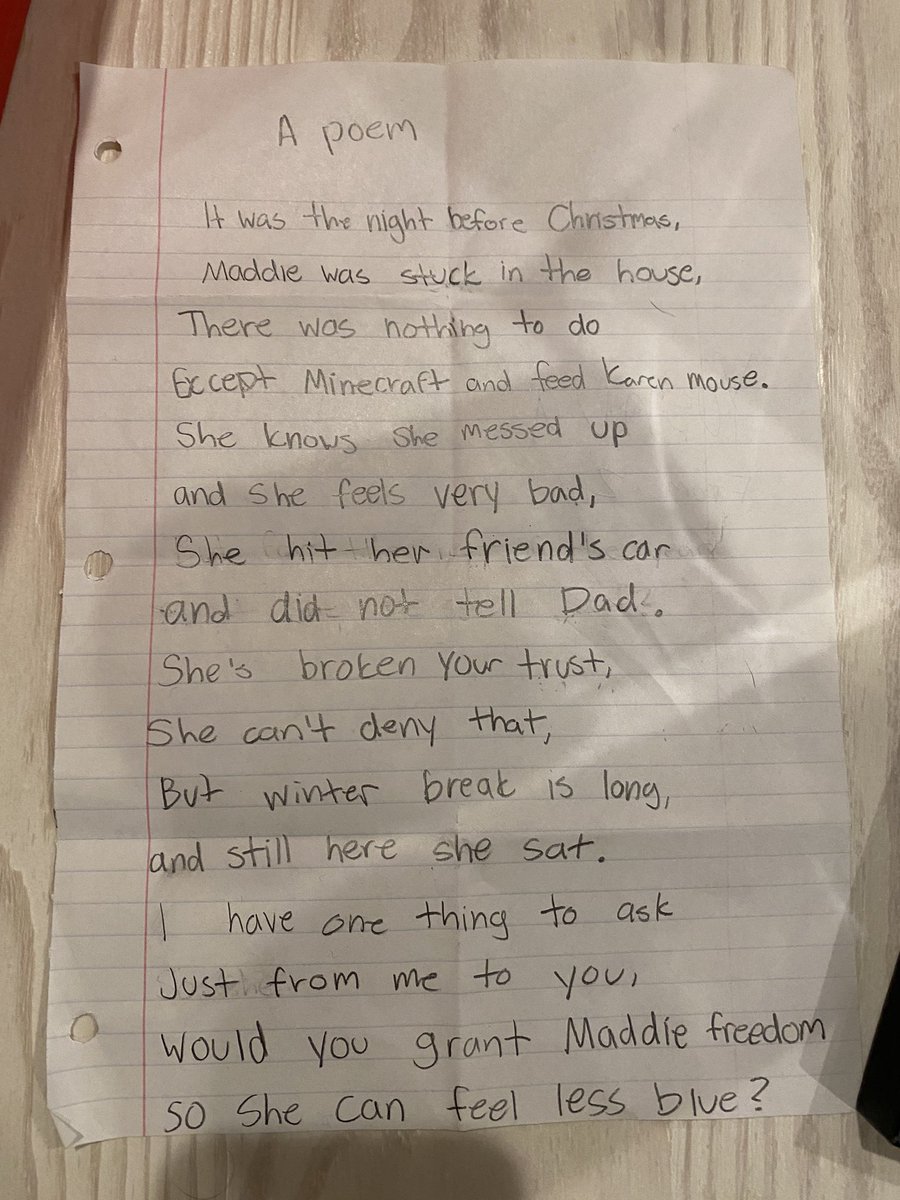 A poem
It was the night before Christmas,
Maddie was stuck in the house,
There was nothing to do
Eccept Minecraft and feed Karen mouse.
She knows she messed up
and she feels very bad,
She hit her friend's car
and did not tell Dad.
She's broken your trust,
She can't deny that,
But winter break is long,
and still here she sat.
I have one thing to ask
Just from me to you,
Would you grant Maddie freedom
so she can feel less blue?